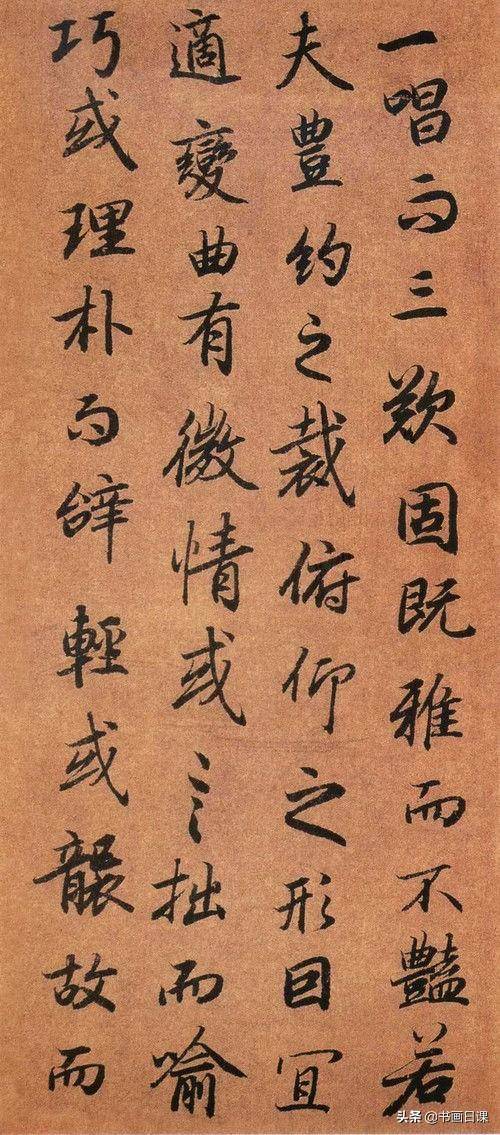 一唱而三歎固既雅而不豔若
夫豊約之裁俯仰之形因宜
適變曲有微情或言拙而喻
巧或理朴而辭輕或襲故而
头条 @书画日课